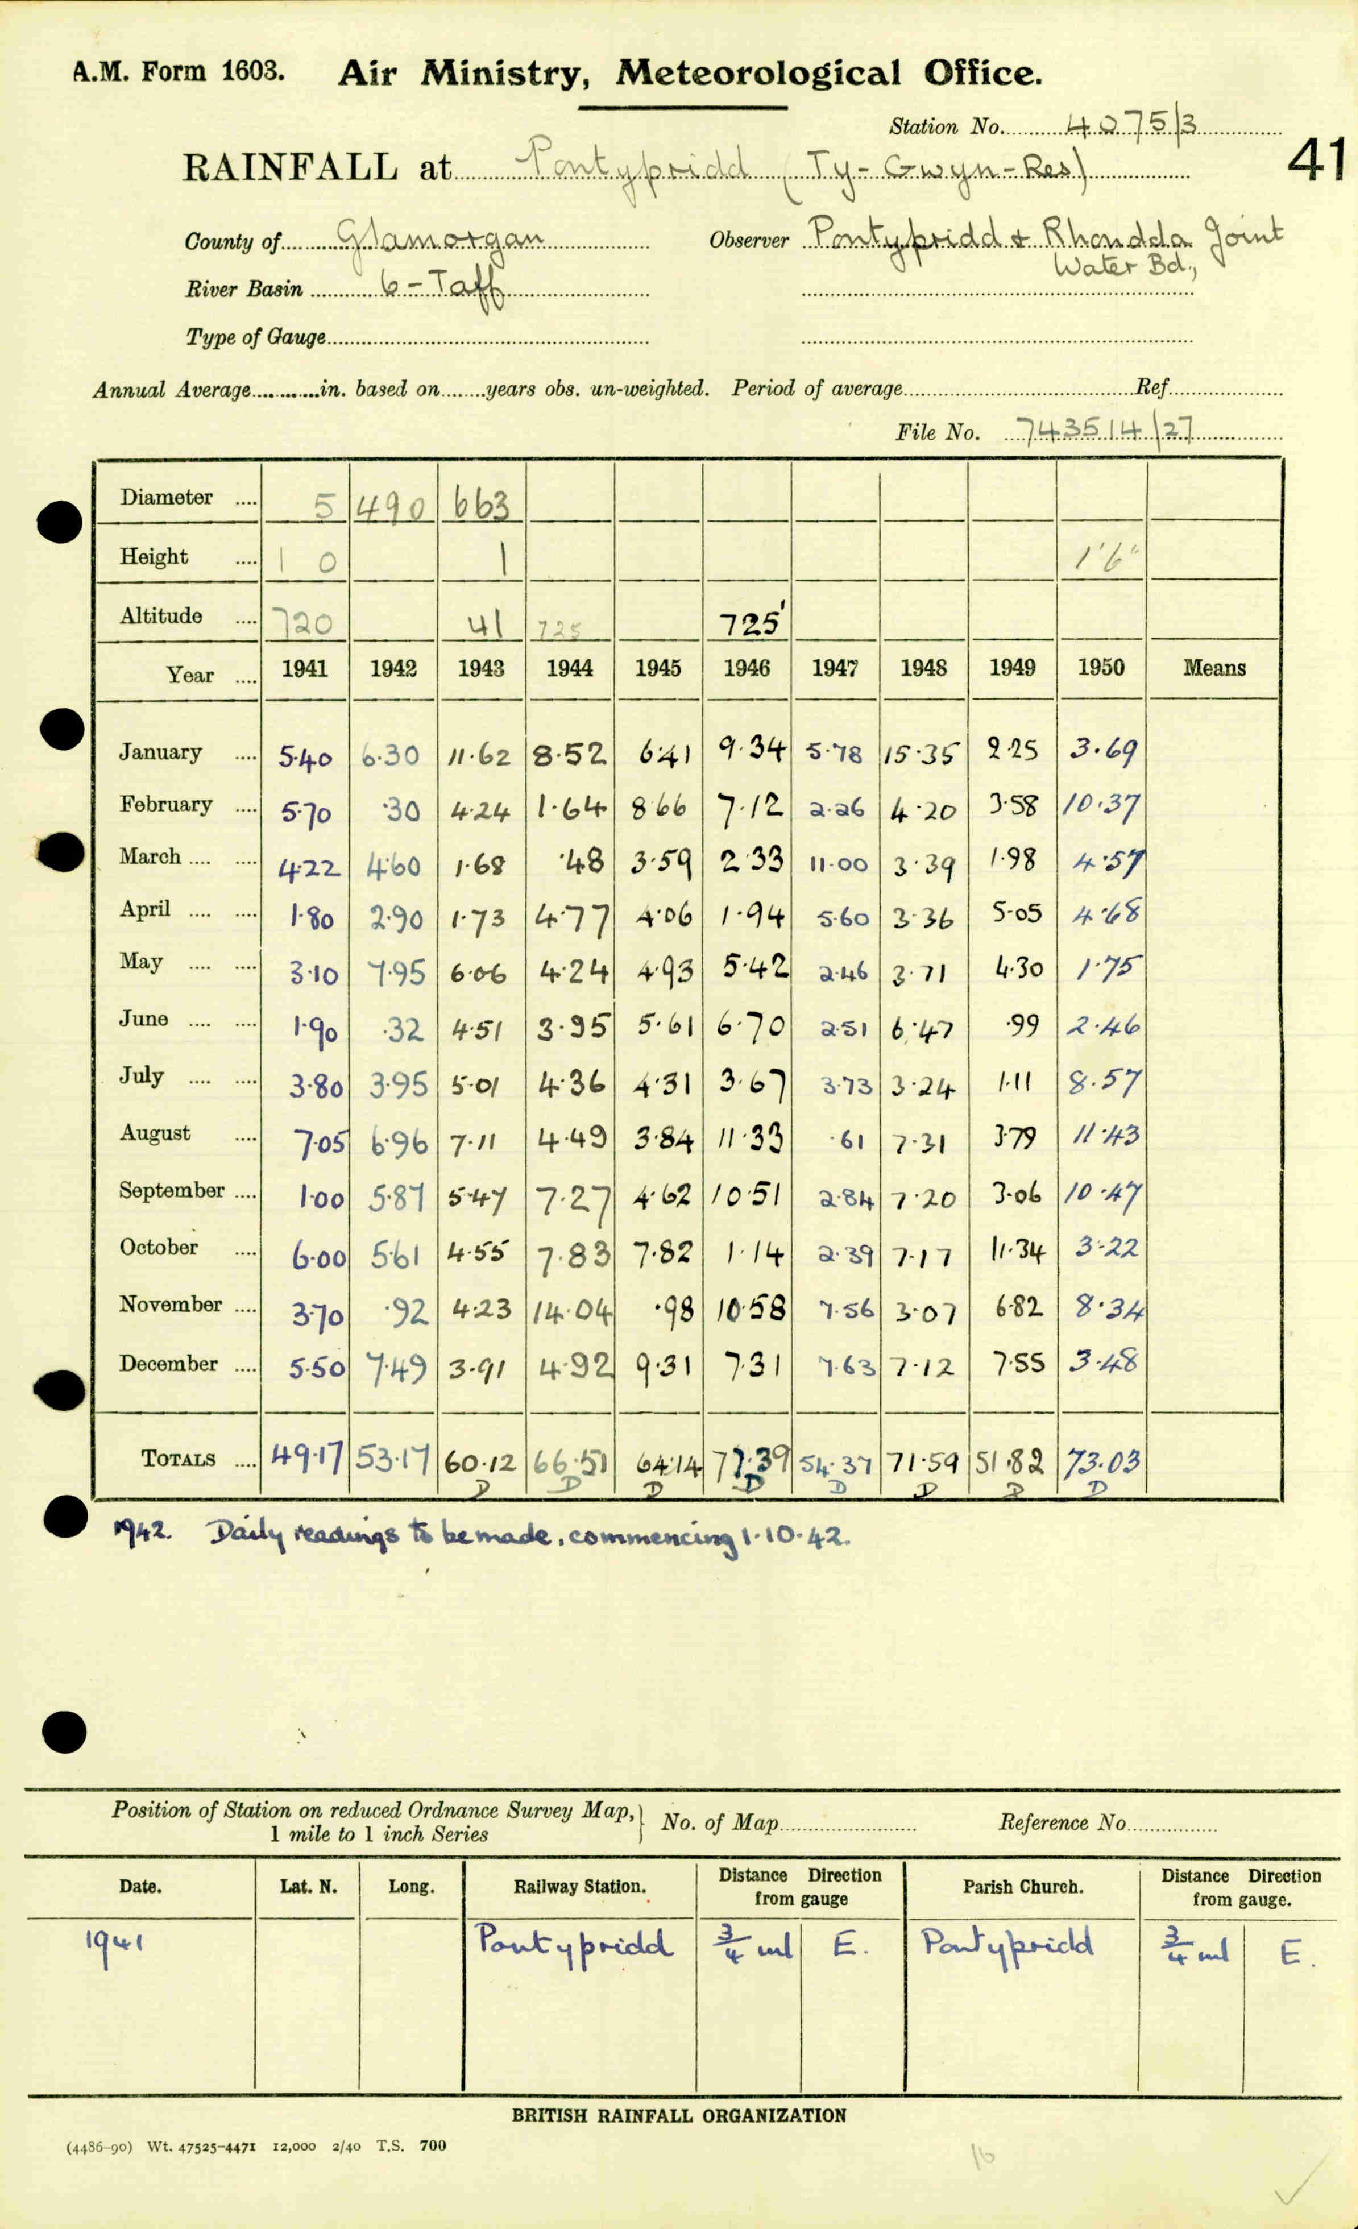 A.M. Form 1603. Air Ministry, Meteorological Office.
Station No. 4075/3
41
RAINFALL at Pontypridd (Ty-Gwyn-Res)
County of Glamorgan Observer Pontypridd & Rhondda Joint
Water Bd.,
River Basin 6-Taff
Type of Gauge
Annual Average in. based on years obs. un-weighted. Period of average Ref.
File No. 743514/27
Diameter .... 5 490 663
Height .... 1 0 1 1'6"
Altitude .... 720 41 725 725'
Year .... 1941 1942 1943 1944 1945 1946 1947 1948 1949 1950 Means
January .... 5.40 6.30 11.62 8.52 6.41 9.34 5.78 15.35 2.25 3.69
February .... 5.70 .30 4.24 1.64 8.66 7.12 2.26 4.20 3.58 10.37
March .... .... 4.22 4.60 1.68 .48 3.59 2.33 11.00 3.39 1.98 4.57
April .... .... 1.80 2.90 1.73 4.77 4.06 1.94 5.60 3.36 5.05 4.68
May .... .... 3.10 7.95 6.06 4.24 4.93 5.42 2.46 3.71 4.30 1.75
June .... .... 1.90 .32 4.51 3.95 5.61 6.70 2.51 6.47 .99 2.46
July .... .... 3.80 3.95 5.01 4.36 4.31 3.67 3.73 3.24 1.11 8.57
August .... 7.05 6.96 7.11 4.49 3.84 11.33 .61 7.31 3.79 11.43
September .... 1.00 5.87 5.47 7.27 4.62 10.51 2.84 7.20 3.06 10.47
October .... 6.00 5.61 4.55 7.83 7.82 1.14 2.39 7.17 11.34 3.22
November .... 3.70 .92 4.23 14.04 .98 10.58 7.56 3.07 6.82 8.34
December .... 5.50 7.49 3.91 4.92 9.31 7.31 7.63 7.12 7.55 3.48
TOTALS .... 49.17 53.17 60.12 66.51 64.14 77.39 54.37 71.59 51.82 73.03
D D D D D D D D
1942. Daily readings to be made, commencing 1.10.42.
Position of Station on reduced Ordnance Survey Map,
1 mile to 1 inch Series
No. of Map Reference No.
Date. Lat. N. Long. Railway Station. Distance Direction from gauge Parish Church. Distance Direction from gauge.
1941 Pontypridd 3/4 ml E. Pontypridd 3/4 ml E.
BRITISH RAINFALL ORGANIZATION
(4486-90) Wt. 47525-4471 12,000 2/40 T.S. 700
16